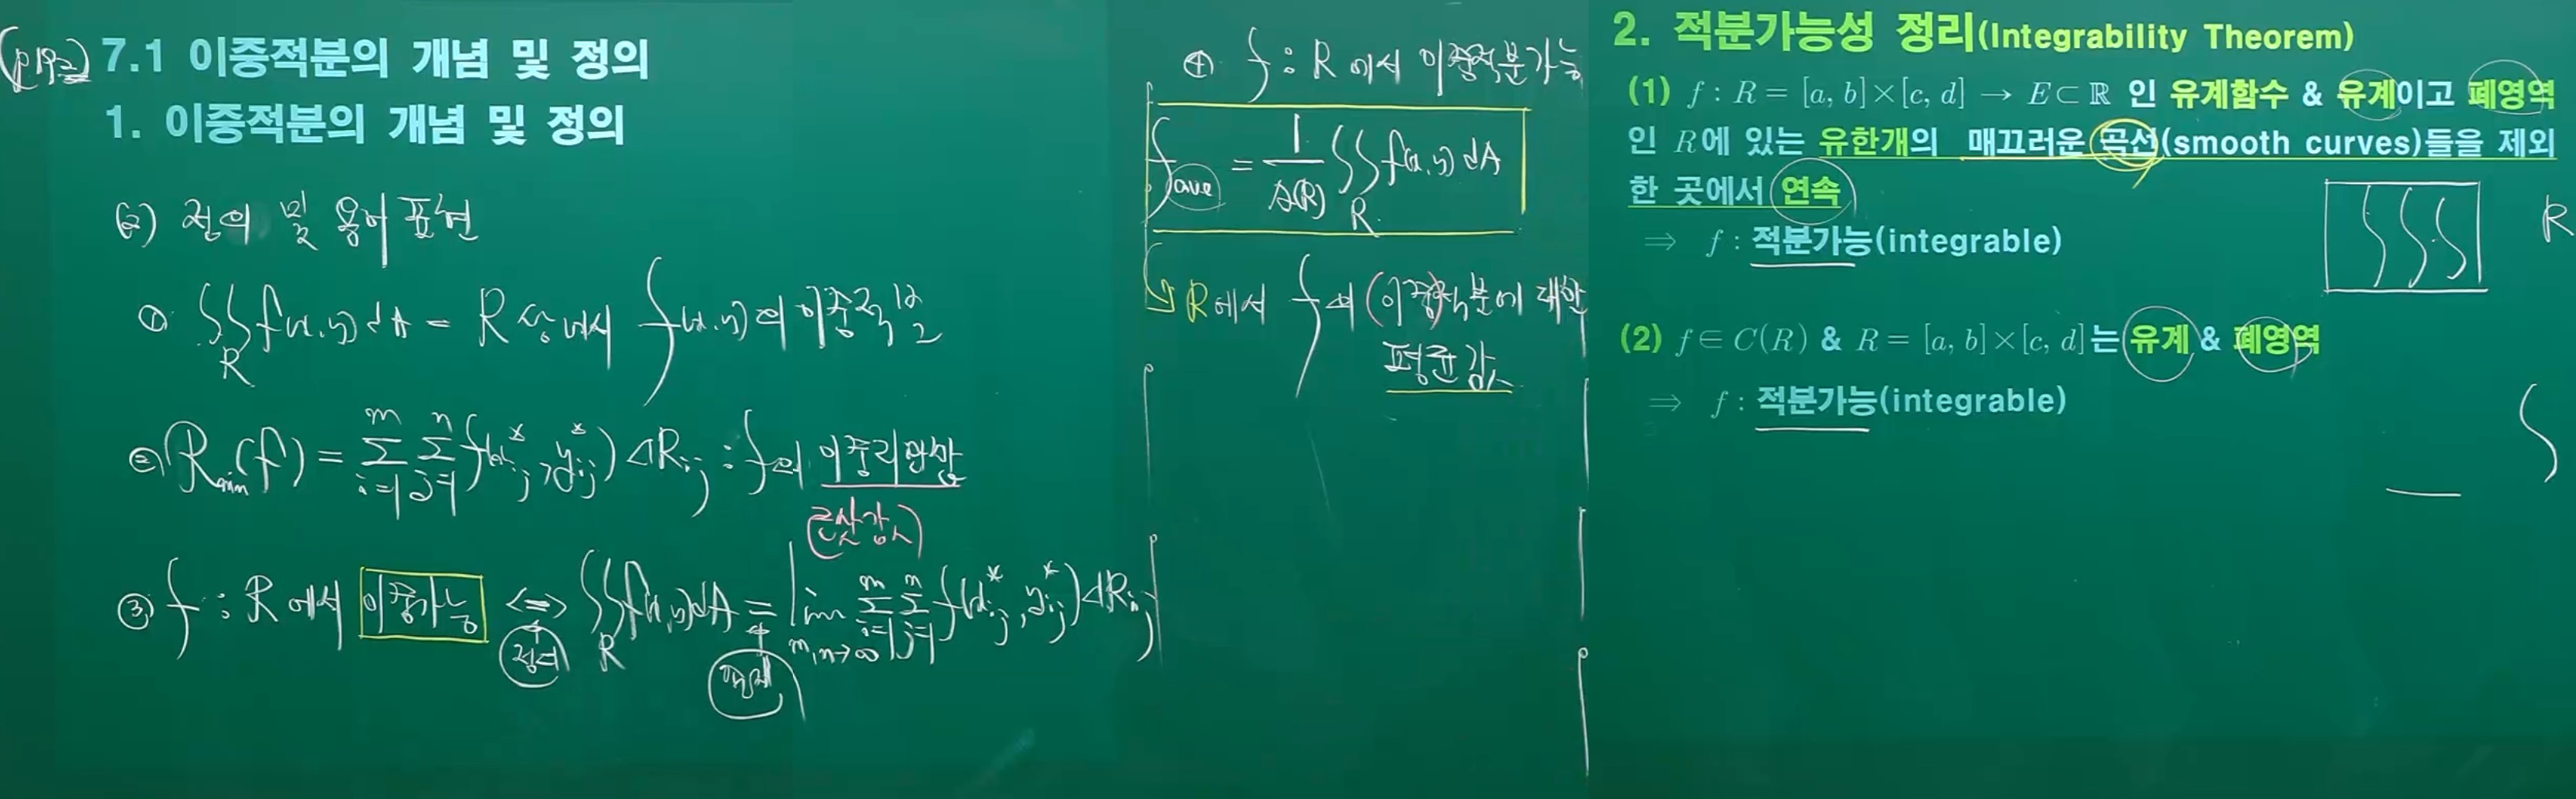 (p192) 7.1 이중적분의 개념 및 정의
1. 이중적분의 개념 및 정의
(2) 정의 및 용어 표현
① ∬_R f(x,y) dA = R 상에서 f(x,y)의 이중적분
② R_mn(f) = Σ_{i=1}^{m} Σ_{j=1}^{n} f(x_ij*, y_ij*) ΔR_ij : f의 이중리만합
(근삿값)
③ f : R에서 이중가능 ⟺ ∬_R f(x,y) dA = lim_{m,n→∞} Σ_{i=1}^{m} Σ_{j=1}^{n} f(x_ij*, y_ij*) ΔR_ij
정의
④ f : R에서 이중적분가능
f_ave = 1/A(R) ∬_R f(x,y) dA
R에서 f의 (이중)적분에 대한
평균값
2. 적분가능성 정리(Integrability Theorem)
(1) f : R = [a, b]×[c, d] → E⊂ℝ 인 유계함수 & 유계이고 폐영역
인 R에 있는 유한개의 매끄러운 곡선(smooth curves)들을 제외
한 곳에서 연속
⇒ f : 적분가능(integrable)
R
(2) f∈C(R) & R = [a, b]×[c, d]는 유계 & 폐영역
⇒ f : 적분가능(integrable)